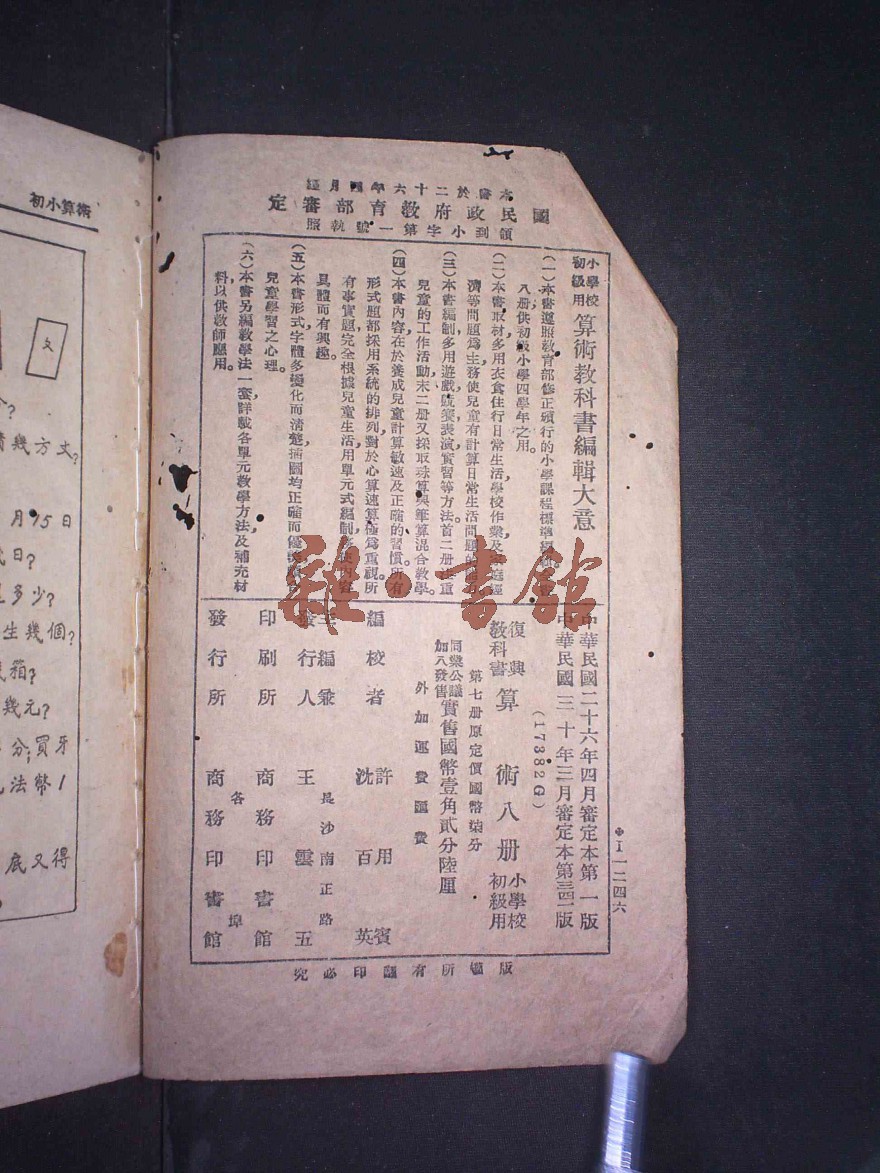 本書於二十六年四月經
國民政府教育部審定
領到小字第一號執照
小學校初級用 算術教科書編輯大意
(一)本書遵照教育部修正頒行的小學課程標準
八册供初級小學四學年之用。
(二)本書取材多用衣食住行日常生活學校作業及家庭經
濟等問題爲主務使兒童有計算日常生活問題的
(三)本書編制多用遊戲競賽表演實習等方法。首二册
兒童的工作活動末二册又採取珠算與筆算混合教學。
(四)本書內容在於養成兒童計算敏速及正確的習慣。所有
形式題都採用系統的排列對於心算速算極爲重視。所
有事實題完全根據兒童生活用單元式編制
具體而有興趣。
(五)本書形式字體多變化而清楚插圖均正確而優美
兒童學習之心理。
(六)本書另編教學法一套詳載各單元教學方法及補充材
料以供教師應用。
※I一二四六
中華民國二十六年四月審定本第一版
中華民國三十年三月審定本第三四一版
(17382G)
復興教科書 算術八册 小學校初級用
第七册原定價國幣柒分
同業公議加八發售 實售國幣壹角貳分陸厘
外加運費匯費
編校者 許用賓 沈百英
主編兼發行人 王雲五
長沙南正路
印刷所 商務印書館
發行所 商務印書館
各埠
版權所有翻印必究
雜·書館
初小算術
文
幾方丈?
月15日
日?
多少?
生幾個?
箱?
幾元?
分;買牙
法幣1
底又得